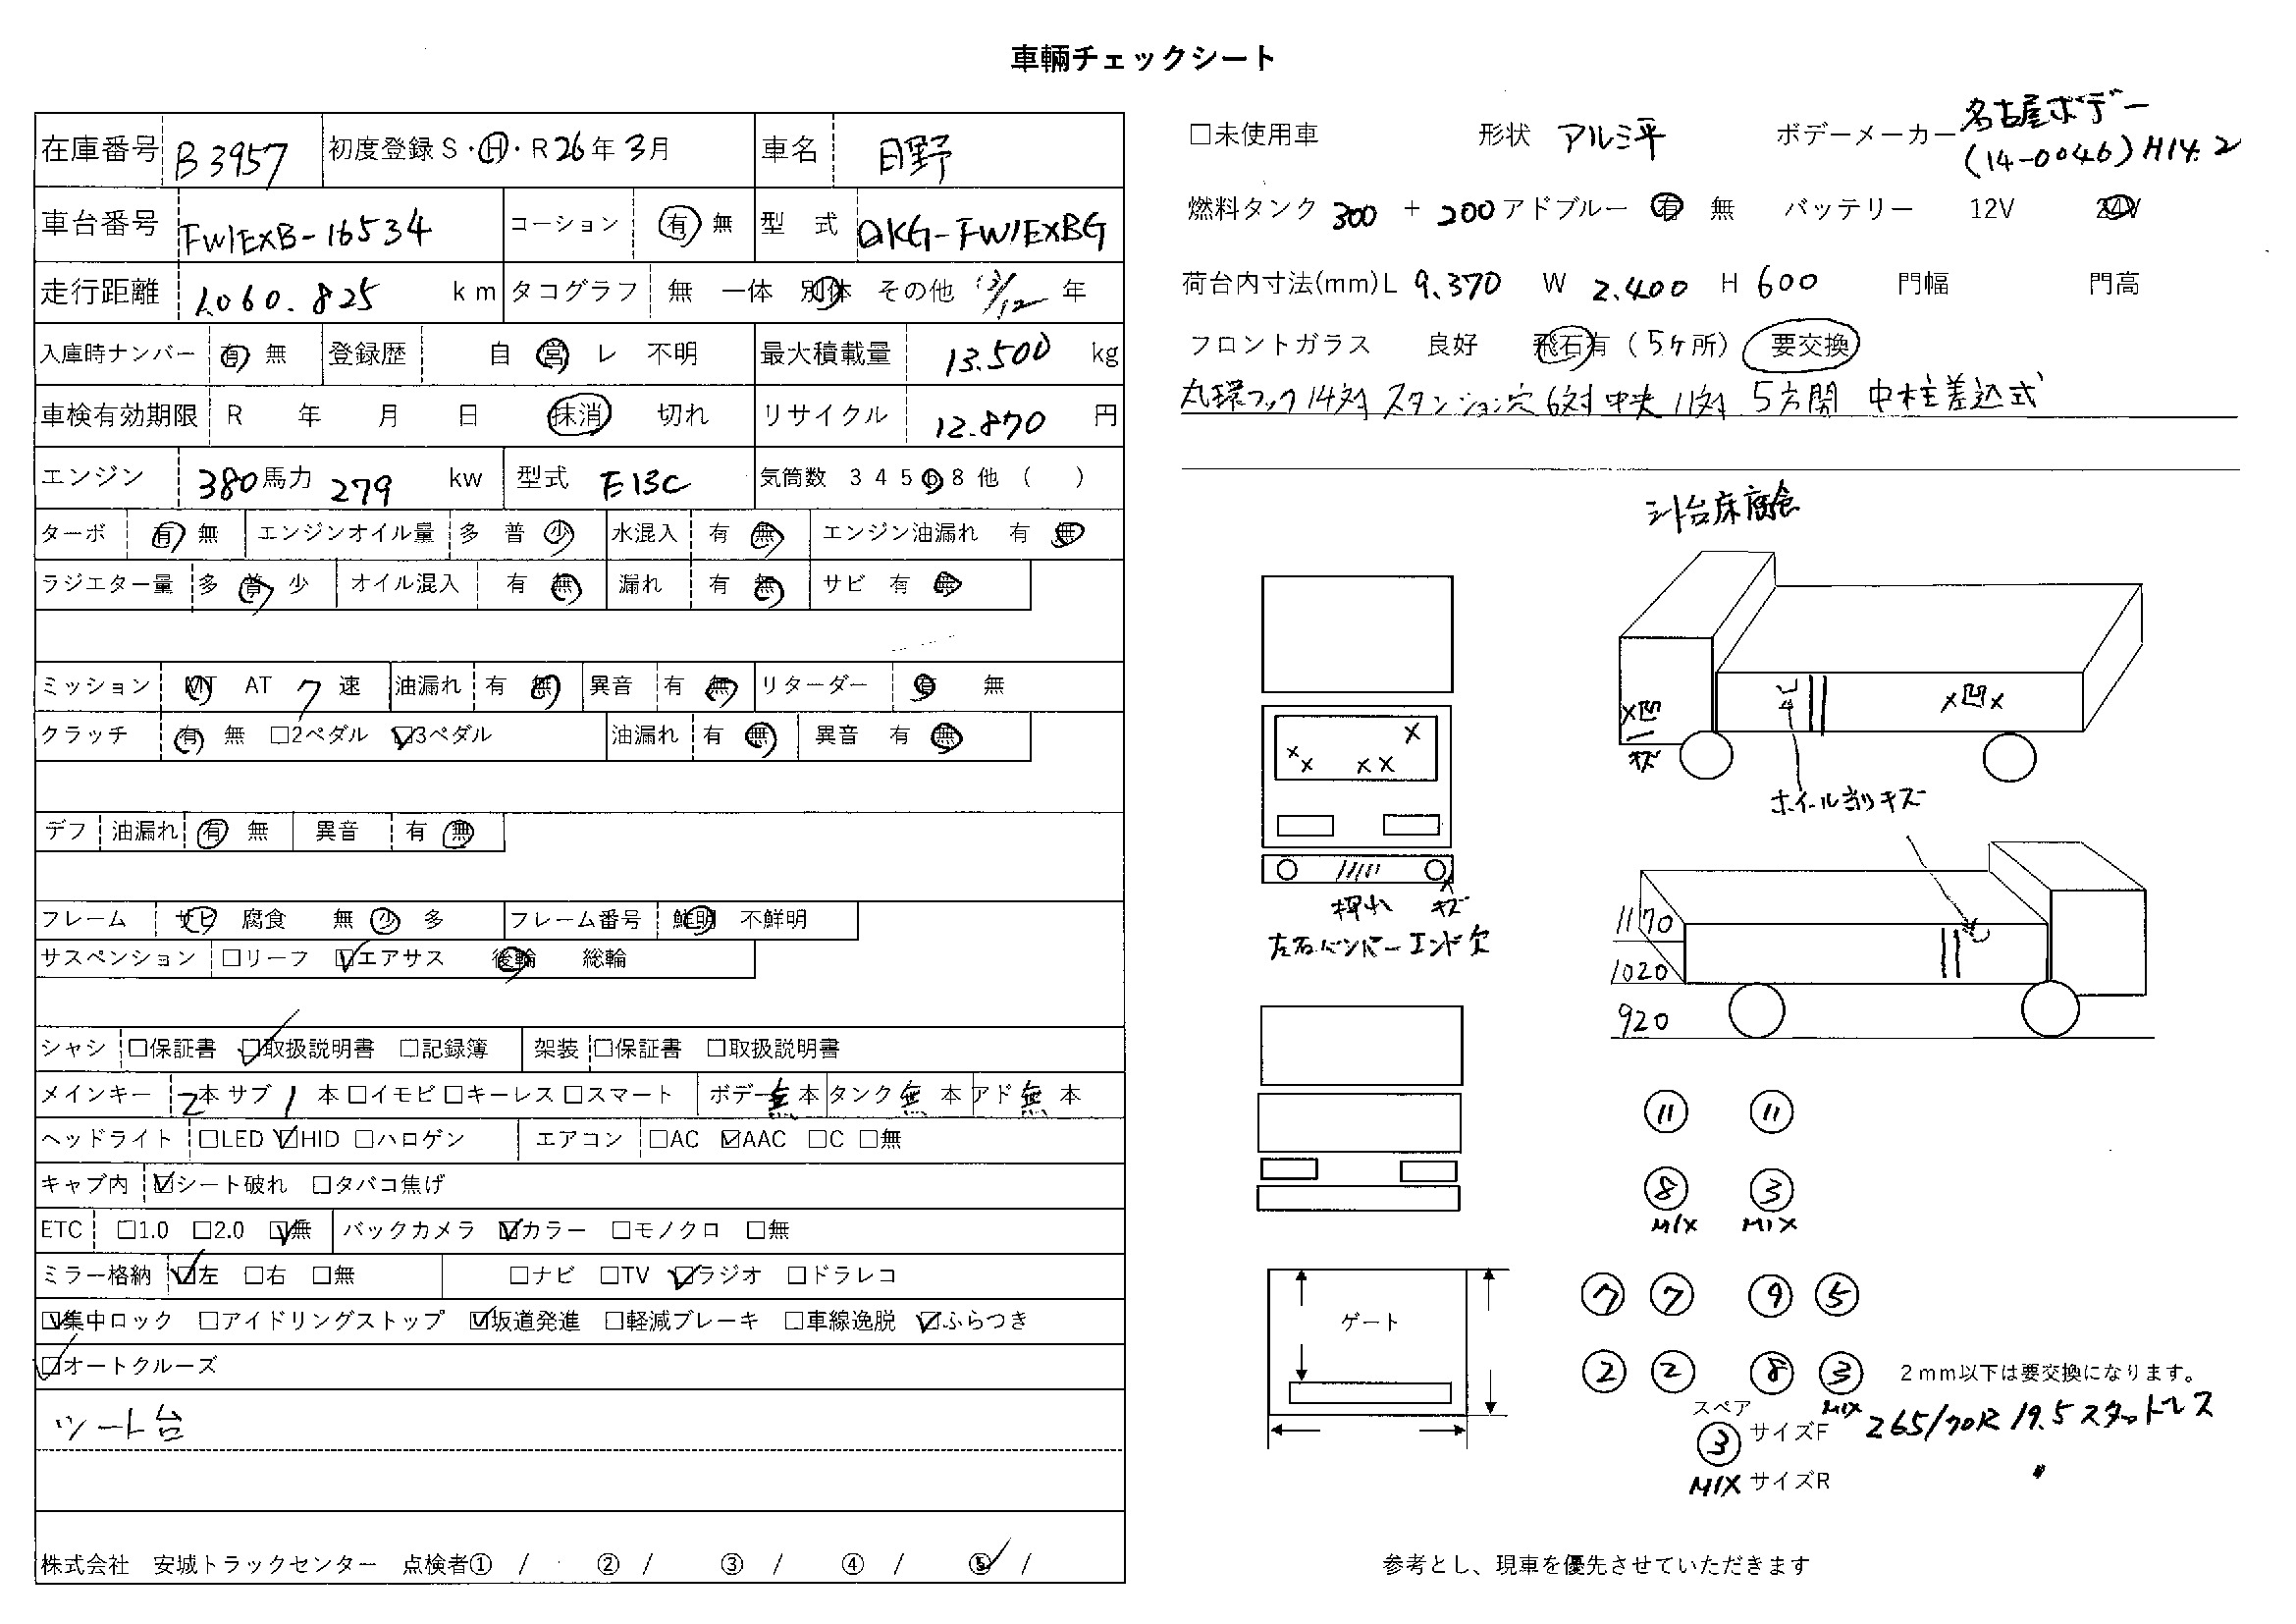 車輛チェックシート
在庫番号 B3957 初度登録 S・H・R 26年 3月 車名 日野
車台番号 FW1EXB-16534 コーション 有 無 型 式 QKG-FW1EXBG
走行距離 1.060.825 km タコグラフ 無 一体 別体 その他 13/12 年
入庫時ナンバー 有 無 登録歴 自 営 レ 不明 最大積載量 13.500 kg
車検有効期限 R 年 月 日 抹消 切れ リサイクル 12.870 円
エンジン 380馬力 279 kw 型式 E13C 気筒数 3 4 5 6 8 他 ( )
ターボ 有 無 エンジンオイル量 多 普 少 水混入 有 無 エンジン油漏れ 有 無
ラジエター量 多 普 少 オイル混入 有 無 漏れ 有 無 サビ 有 無
ミッション MT AT 7 速 油漏れ 有 無 異音 有 無 リターダー 有 無
クラッチ 有 無 □2ペダル ☑3ペダル 油漏れ 有 無 異音 有 無
デフ 油漏れ 有 無 異音 有 無
フレーム サビ 腐食 無 少 多 フレーム番号 鮮明 不鮮明
サスペンション □リーフ ☑エアサス 後輪 総輪
シャシ □保証書 ☑取扱説明書 □記録簿 架装 □保証書 □取扱説明書
メインキー 2本 サブ 1 本 □イモビ □キーレス □スマート ボデー 無 本 タンク 無 本 アド 無 本
ヘッドライト □LED ☑HID □ハロゲン エアコン □AC ☑AAC □C □無
キャブ内 ☑シート破れ □タバコ焦げ
ETC □1.0 □2.0 ☑無 バックカメラ ☑カラー □モノクロ □無
ミラー格納 ☑左 □右 □無 □ナビ □TV ☑ラジオ □ドラレコ
☑集中ロック □アイドリングストップ ☑坂道発進 □軽減ブレーキ □車線逸脱 ☑ふらつき
☑オートクルーズ
シート台
株式会社 安城トラックセンター 点検者① / ② / ③ / ④ / ⑤ /
□未使用車 形状 アルミ平 ボデーメーカー 名古屋ボデー
(14-0046) H14.2
燃料タンク 300 + 200 アドブルー 有 無 バッテリー 12V 24V
荷台内寸法(mm) L 9.370 W 2.400 H 600 門幅 門高
フロントガラス 良好 飛石有 (5ヶ所) 要交換
丸環フック14対 スタンション穴6対 中央11対 5方開 中柱差込式
シート台床腐食
X凹
キズ
X凹X
ホイール当りキズ
押れ キズ
左右バンパーエンド欠
1170
1020
920
11 11
8 3
MIX MIX
7 7 9 5
ゲート
2 2 8 3 2mm以下は要交換になります。
MIX
スペア
3 サイズF 265/70R 19.5 スタットレス
MIX サイズR 〃
参考とし、現車を優先させていただきます